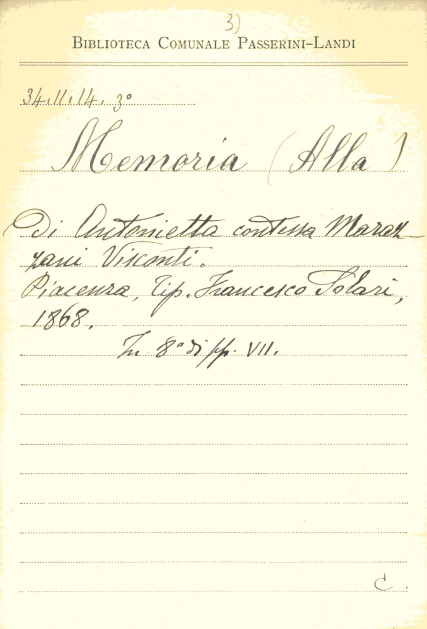 3)
BIBLIOTECA COMUNALE PASSERINI-LANDI
34.11.14. 3º
Memoria (Alla)
Di Antonietta contessa Maraz-
zani Visconti.
Piacenza, Tip. Francesco Solari,
1868.
In 8º di pp. VII.
C.